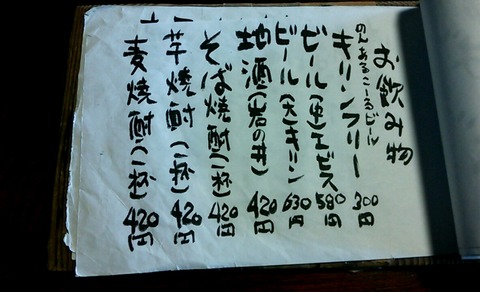 お飲み物
のんあるこーるビール
キリンフリー 300円
ビール(中)エビス 580円
ビール(大)キリン 630円
地酒(岩の井) 420円
そば焼酎(一杯) 420円
芋焼酎(一杯) 420円
麦焼酎(一杯) 420円